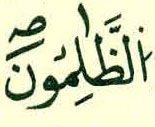 ٱلظَّٰلِمُونَ ۖ